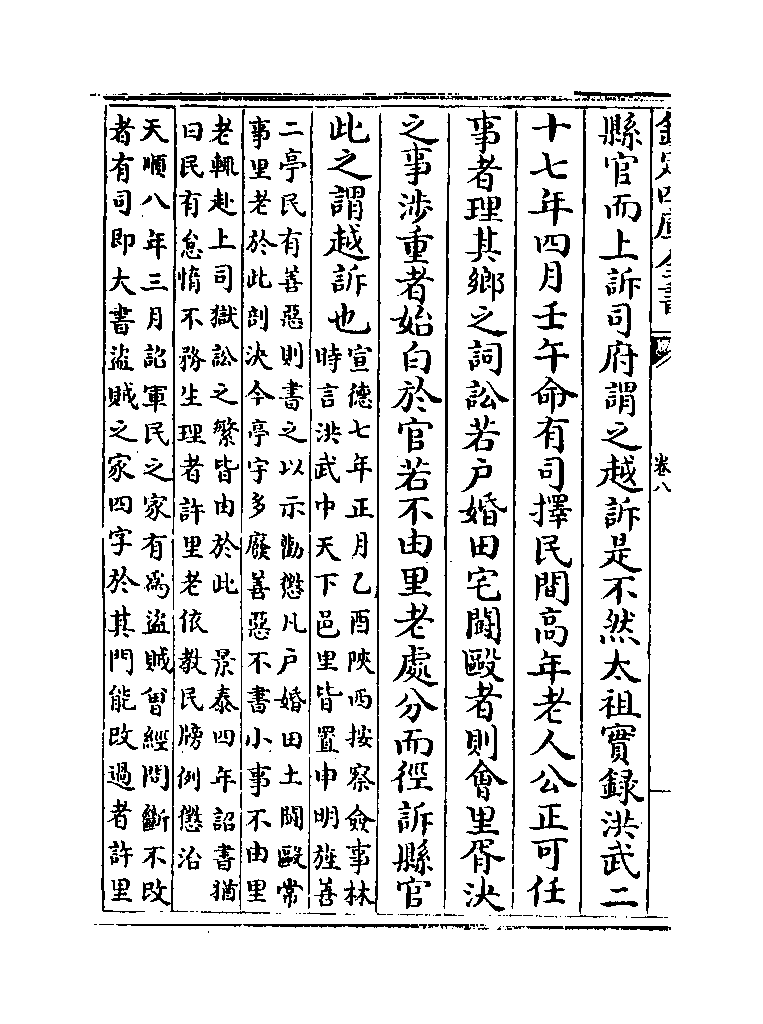 欽定四庫全書
卷八
縣官而上訴司府謂之越訴是不然太祖實録洪武二
十七年四月壬午命有司擇民間高年老人公正可任
事者理其鄉之詞訟若户婚田宅鬭毆者則會里胥決
之事涉重者始白於官若不由里老處分而徑訴縣官
此之謂越訴也
宣德七年正月乙酉陜西按察僉事林
時言洪武中天下邑里皆置申明旌善
二亭民有善惡則書之以示勸懲凡户婚田土鬭毆常
事里老於此剖決今亭宇多廢善惡不書小事不由里
老輒赴上司獄訟之繁皆由於此　景泰四年詔書猶
曰民有怠惰不務生理者許里老依教民牓例懲治
天順八年三月詔軍民之家有為盜賊曾經問斷不改
者有司即大書盜賊之家四字於其門能改過者許里